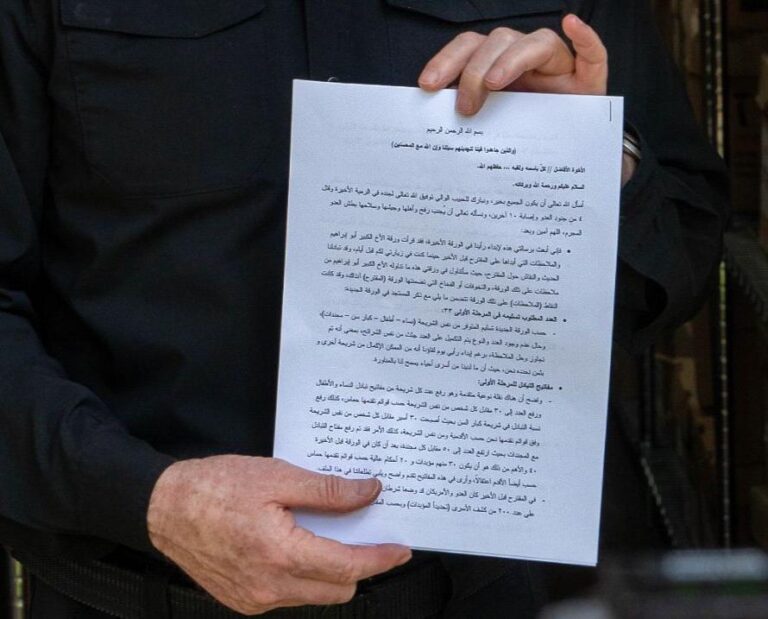 بسم الله الرحمن الرحيم
(والذين جاهدوا فينا لنهدينهم سبلنا وإن الله مع المحسنين)
الأخوة الأفاضل // كلّ باسمه ولقبه ... حفظهم الله.
السلام عليكم ورحمة الله وبركاته.
أسأل الله تعالى أن يكون الجميع بخير، ونبارك للحبيب الوالي توفيق الله تعالى لجنده في الرمية الأخيرة وقتل
٤ من جنود العدو وإصابة ١٠ آخرين، ونسأله تعالى أن يُجنب رفح وأهلها وجيشها وسلاحها بطش العدو
المجرم، اللهم آمين وبعد.
• فإني أبعث برسالتي هذه لإبداء رأينا في الورقة الأخيرة، فقد قرأت ورقة الأخ الكبير أبو إبراهيم
والملاحظات التي أبداها على المقترح قبل الأخير حينما كنت في زيارتي لكم قبل أيام، وقد تبادلنا
الحديث والنقاش حول المقترح، حيث سأتناول في ورقتي هذه ما تداوله الأخ الكبير أبو إبراهيم من
ملاحظات على تلك الورقة، والتخوفات أو الفخاخ التي تضمنتها الورقة (المقترح) آنذاك، وقد كانت
النقاط (الملاحظات) على تلك الورقة تتضمن ما يلي مع ذكر المستجد في الورقة الجديدة:
• العدد المطلوب تسليمه في المرحلة الأولى ٣٣:
- حسب الورقة الجديدة تسليم المتوفر من نفس الشريحة (نساء – أطفال – كبار سن – مجندات)،
وحال عدم وجود العدد والنوع يتم التكميل على العدد جثث من نفس الشرائح، بمعنى أنه تم
تجاوز وحل الملاحظة، برغم إبداء رأيي يوم لقاؤنا أنه من الممكن الإكمال من شريحة أخرى و
بثمن نحدده نحن، حيث أن ما لدينا من أسرى أحياء يسمح لنا بالمناورة.
• مفاتيح التبادل للمرحلة الأولى:
- واضح أن هناك نقلة نوعية متقدمة وهو رفع عدد كل شريحة من مفاتيح تبادل النساء والأطفال
ورفع العدد إلى ٣٠ مقابل كل شخص من نفس الشريحة حسب قوائم تقدمها حماس، كذلك رفع
نسبة التبادل في شريحة كبار السن بحيث أصبحت ٣٠ أسير مقابل كل شخص من نفس الشريحة
وفق قوائم تقدمها نحن حسب الأقدمية ومن نفس الشريحة، كذلك الأمر فقد تم رفع مفتاح التبادل
مع المجندات بحيث ارتفع العدد إلى ٥٠ مقابل كل مجندة، بعد أن كان في الورقة قبل الأخيرة
٤٠ والأهم من ذلك هو أن يكون ٣٠ منهم مؤبدات و ٢٠ أحكام عالية حسب قوائم تقدمها حماس
حسب أيضاً الأقدم اعتقالاً، وأرى في هذه المفاتيح تقدم واضح ويلبي تطلعاتنا في هذا الملف.
- في المقترح قبل الأخير كان العدو والأمريكان قد وضعا شرطان
على عدد ٢٠٠ من كشف الأسرى (تحديداً المؤبدات) وبحسب